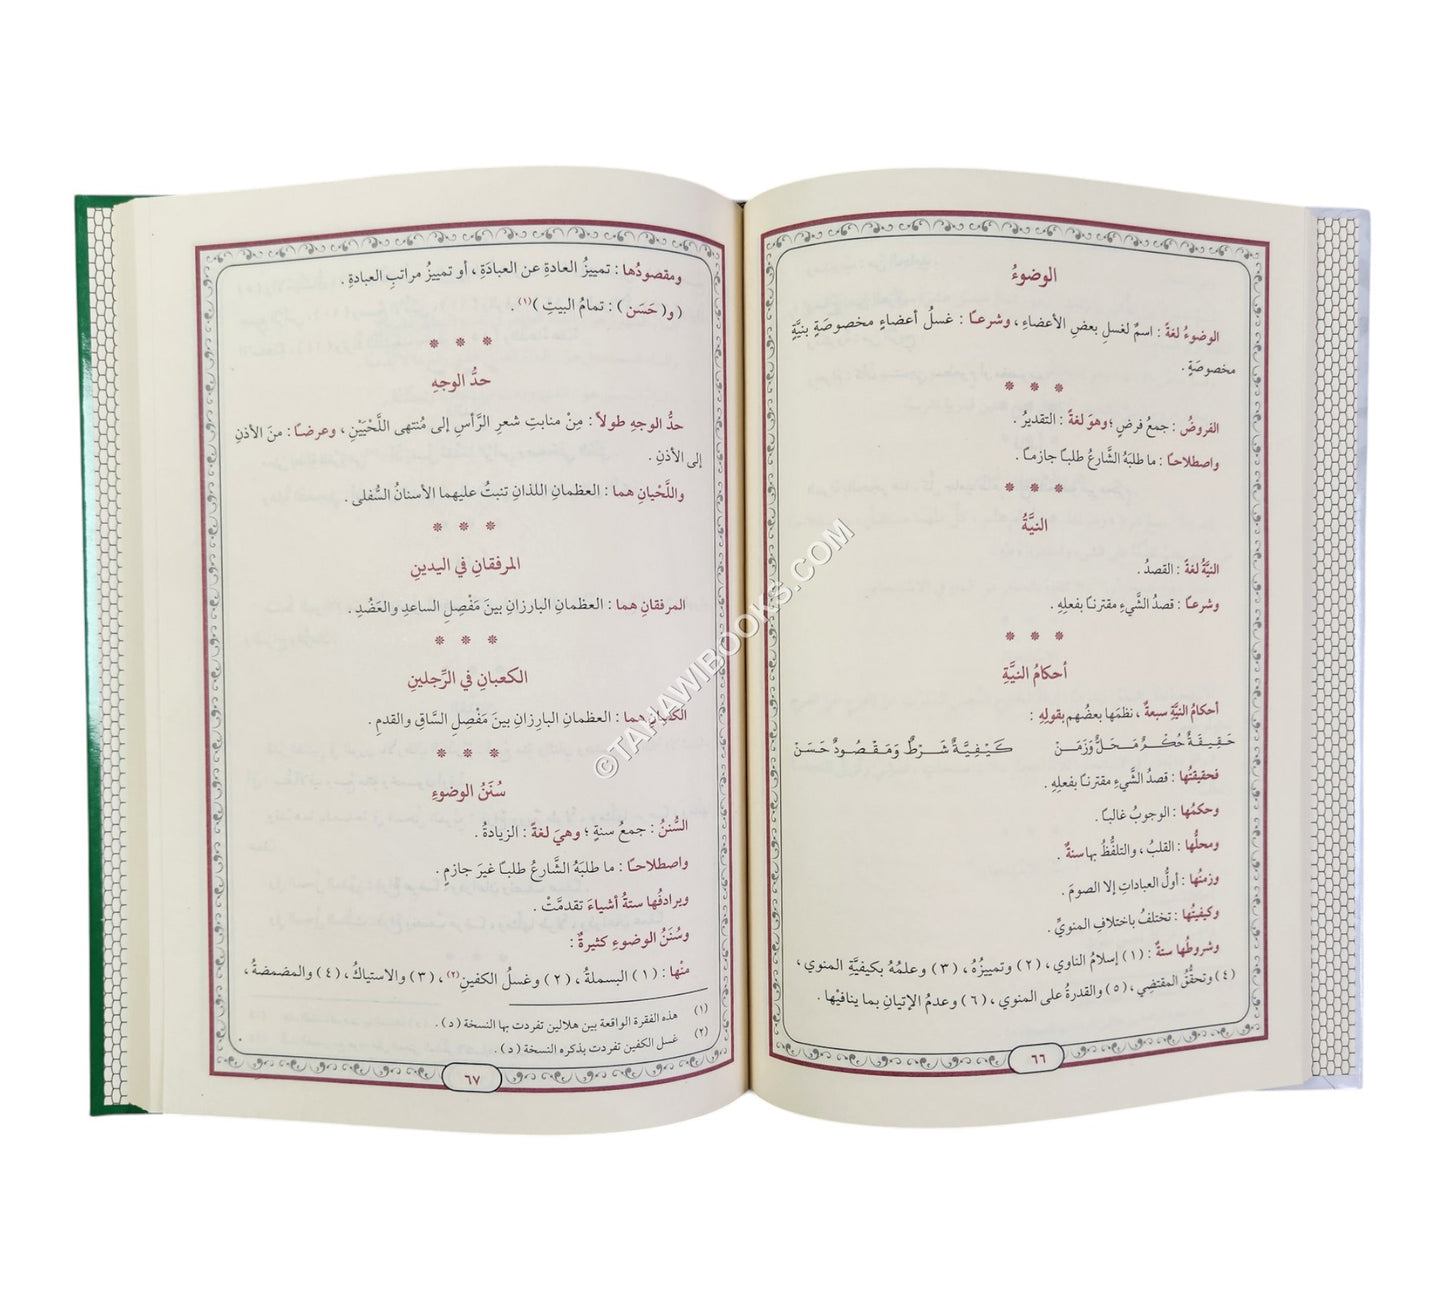 الوضوءُ
الوضوءُ لغةً : اسمٌ لغسلِ بعضِ الأعضاءِ ، وشرعـًا : غسلُ أعضاءٍ مخصوصَةٍ بنيَّةٍ
مخصوصَةٍ .
* * *
الفروضُ : جمعُ فرضٍ ؛ وهوَ لغةً : التقديرُ .
واصطلاحـًا : ما طلبَهُ الشَّارعُ طلبـًا جازمـًا .
* * *
النيَّةُ
النيَّةُ لغةً : القصدُ .
وشرعـًا : قصدُ الشَّيءِ مقترنـًا بفعلِهِ .
* * *
أحكامُ النيَّةِ
أحكامُ النيَّةِ سبعةٌ ، نظمَها بعضُهم بقولِهِ :
حَقِيقَةٌ حُكْمٌ مَحَلٌّ وَزَمَنْ كَيْفِيَّةٌ شَرْطٌ وَمَقْصُودٌ حَسَنْ
فحقيقتُها : قصدُ الشَّيءِ مقترنـًا بفعلِهِ .
وحكمُها : الوجوبُ غالبـًا .
ومحلُّها : القلبُ ، والتلفُّظُ بها سنةٌ .
وزمنُها : أولُ العباداتِ إلا الصومَ .
وكيفيتُها : تختلفُ باختلافِ المنويِّ .
وشروطُها ستةٌ : (١) إسلامُ الناوي ، (٢) وتمييزُهُ ، (٣) وعلمُهُ بكيفيَّةِ المنوي ،
(٤) وتحقُّقُ المقتضِي ، (٥) والقدرةُ على المنوي ، (٦) وعدمُ الإتيانِ بما ينافيْها .
٦٦
ومقصودُها : تمييزُ العادةِ عن العبادَةِ ، أو تمييزُ مراتبِ العبادةِ .
( و( حَسَن ) : تمامُ البيتِ )(١) .
* * *
حدُّ الوجهِ
حدُّ الوجهِ طولاً : مِنْ منابتِ شعرِ الرَّأسِ إلى مُنتهى اللَّحْيَيْنِ ، وعرضـًا : منَ الأذنِ
إلى الأذنِ .
واللَّحْيانِ هما : العظمانِ اللذانِ تنبتُ عليهما الأسنانُ السُّفلى .
* * *
المرفقانِ في اليدينِ
المرفقانِ هما : العظمانِ البارزانِ بينَ مَفْصِلِ الساعدِ والعَضُدِ .
* * *
الكعبانِ في الرِّجلينِ
الكعبانِ هما : العظمانِ البارِزانِ بينَ مَفْصِلِ السَّاقِ والقدمِ .
* * *
سُنَنُ الوضوءِ
السُّننُ : جمعُ سنةٍ ؛ وهيَ لغةً : الزيادةُ .
واصطلاحـًا : ما طلبَهُ الشَّارعُ طلبـًا غيرَ جازمٍ .
ويرادفُها ستةُ أشياءَ تقدمَّتْ .
وسُنَنُ الوضوءِ كثيرةٌ :
منْها : (١) البسملةُ ، (٢) وغسلُ الكفينِ(٢) ، (٣) والاستياكُ ، (٤) والمضمضةُ ،
(١) هذه الفقرة الواقعة بين هلالين تفردت بها النسخة (د) .
(٢) غسل الكفين تفردت بذكره النسخة (د) .
٦٧
© TAHAWIBOOKS.COM